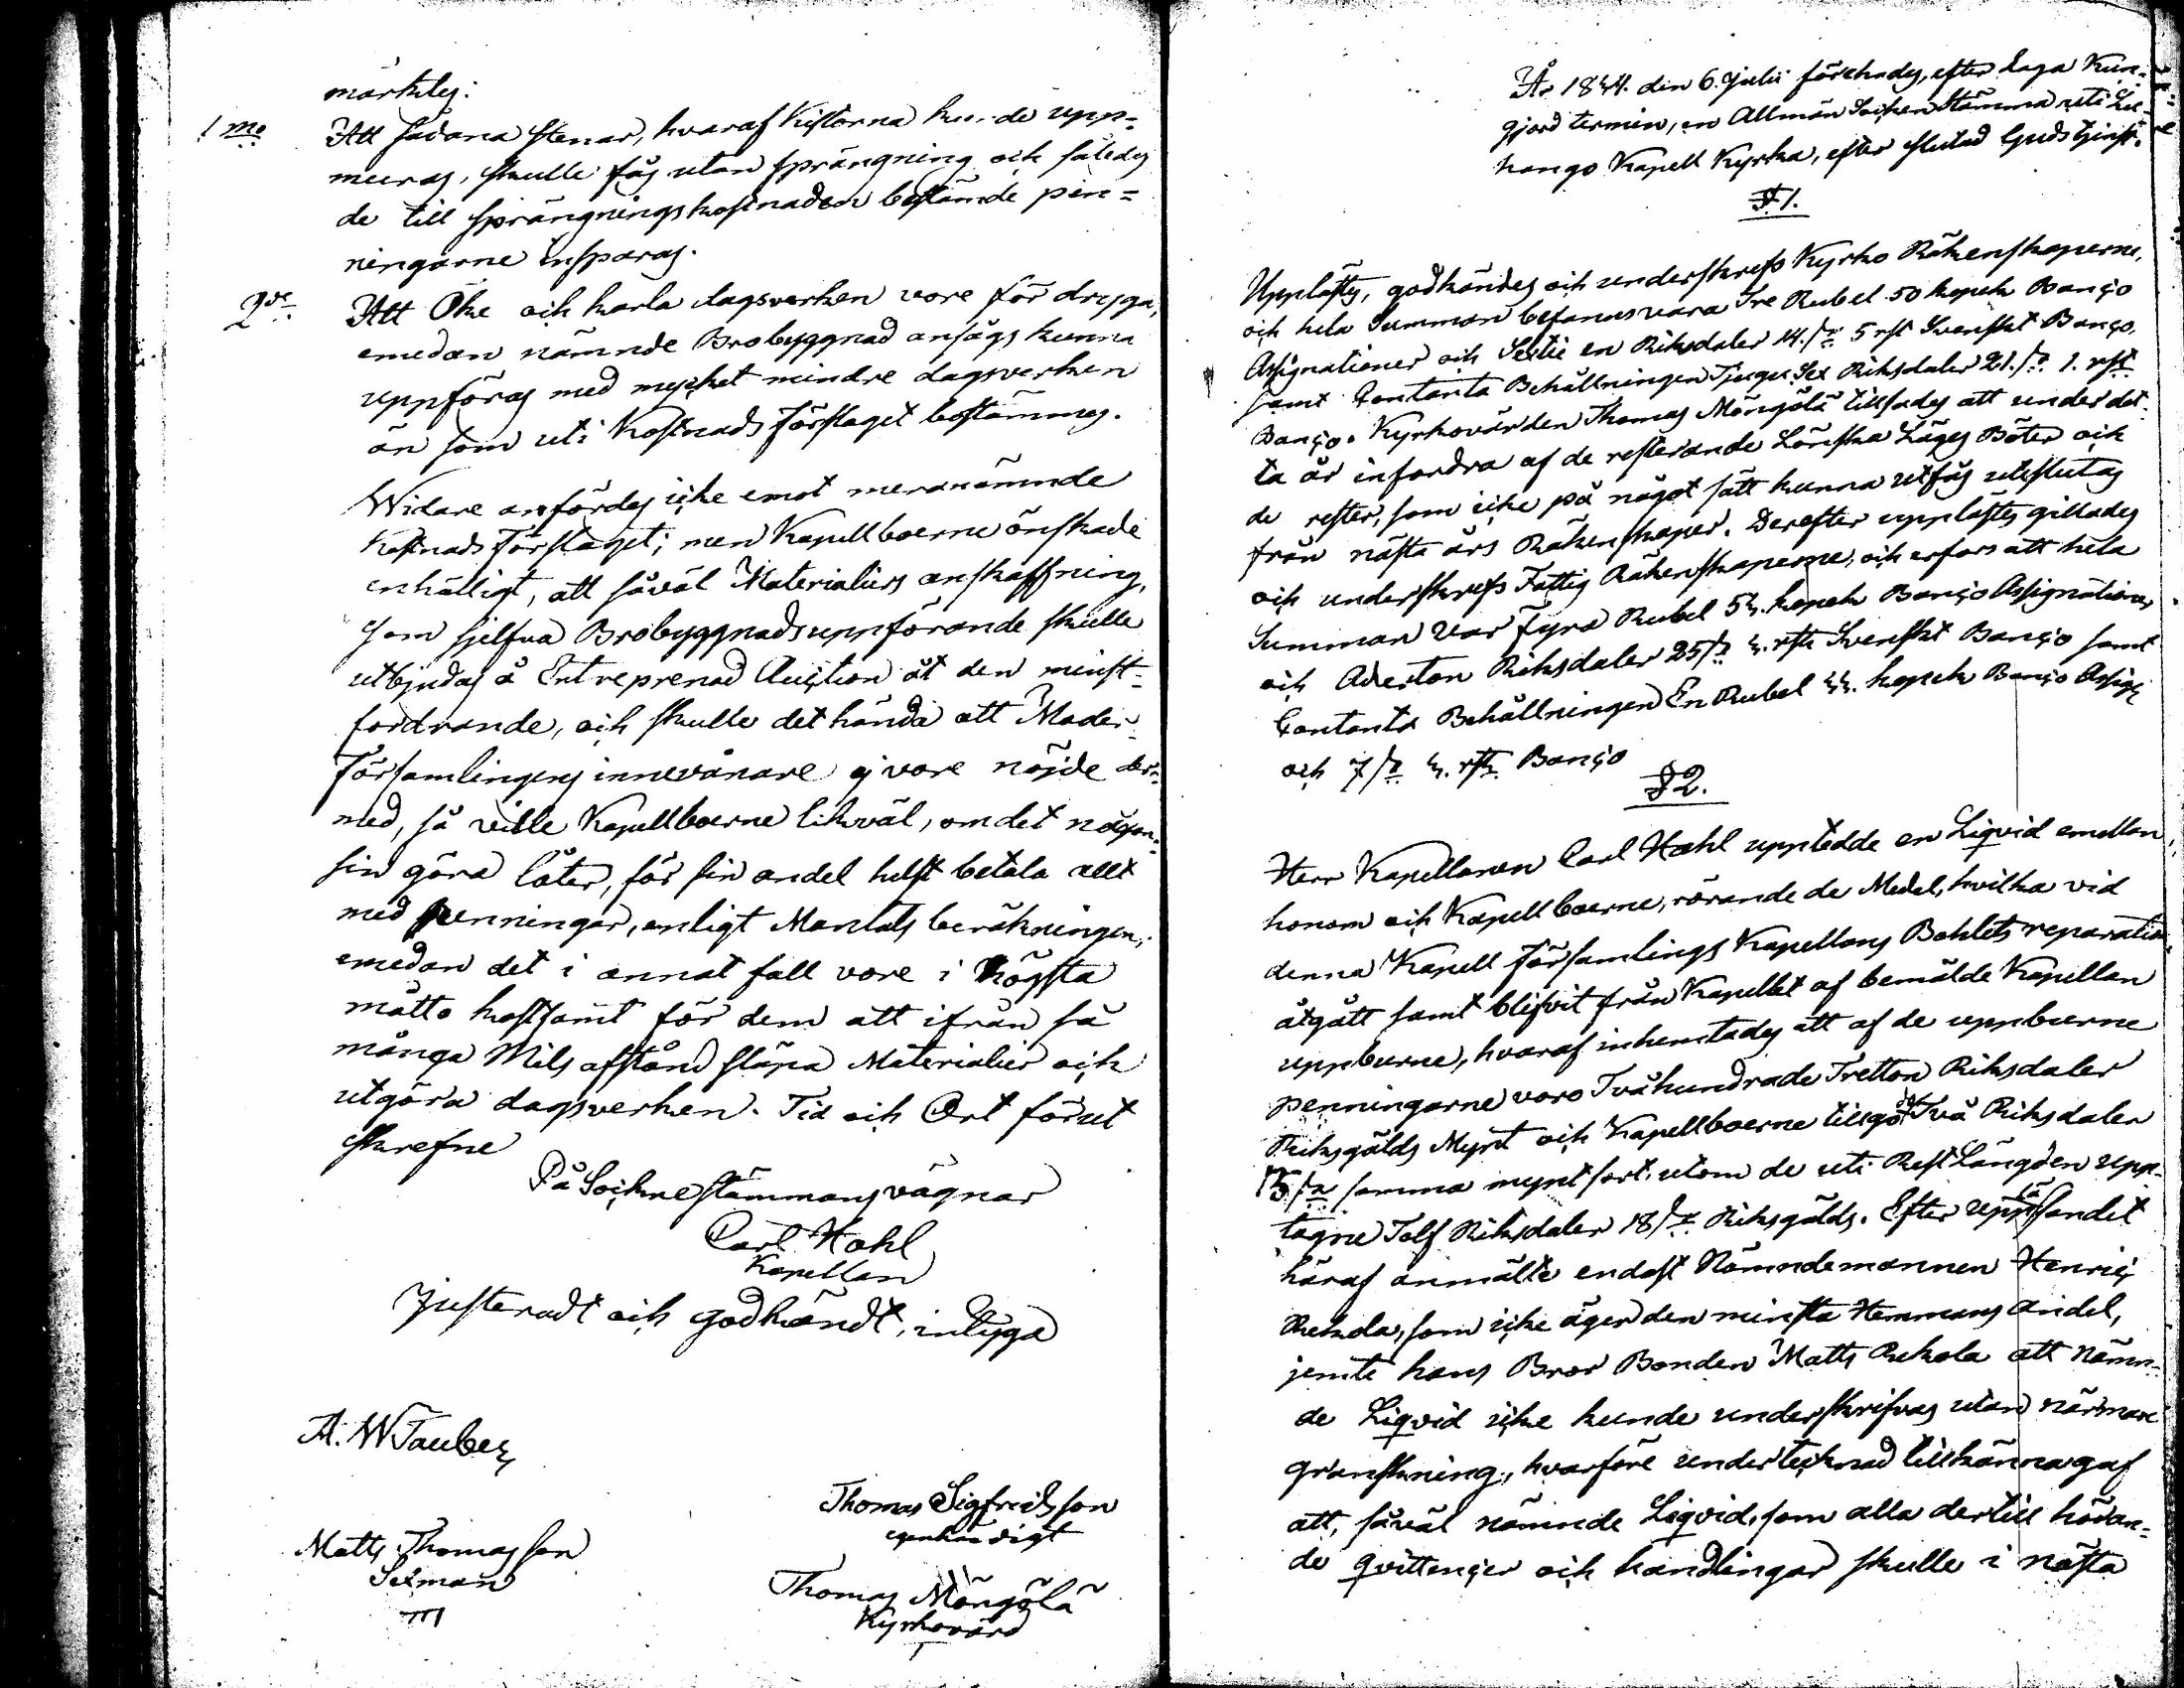 märktes:
1mo Att sådana stenar, hvaraf Kistorna kunde upp=
muras, skulle fås utan sprängning och således
de till sprängningskostnaden bestämde pen=
ningarne insparas.
2do Att Öke och karla dagsverken vore för dryga,
emedan nämnde Brobyggnad ansågs kunna
uppföras med mycket mindre dagsverken
än som uti Kostnads förslaget bestämmes.
Widare anfördes icke emot meranämnde
Kostnads Förslaget; men Kapellboerne önskade
enhälligt, att såväl Materialiers anskaffning,
som sjelfva Brobyggnads uppförande skulle
utbjudas å Entreprenad Auction åt den minst=
fordrande, och skulle det hända att Moder=
Församlingens innevånare ej vore nöjde der=
med, så ville Kapellboerne likväl, om det någon=
sin göra låter, för sin andel helst betala allt
med penningar, enligt Mantals beräkningen;
emedan det i annat fall vore i högsta
måtto kostsamt för dem att ifrån så
många Mils afstånd släpa Materialier och
utgöra dagsverken. Tid och Ort förut
skrefne
På Sockne stämmans vägnar
Carl Hahl
Kapellan
Justeradt och godkändt, intyga
A. W Tauber
Thomas Sigfridsson
egenhändigt
Matts Thomasson
Sexman
Thomas Mångålä
Kyrkovärd
År 1844. den 6. Julii förehades, efter laga Kun=
gjord termin, en Allmän Socken Stämma uti
hango Kapell Kyrka, efter slutad Gudstjenst.
§ 1.
Upplästes, godkändes och underskrefs Kyrko Räkenskaperne,
och hela Summan befanns vara Tre Rubel 50 kopek Banco
Assignationer och Sextie en Riksdaler 14. s. 5 rst Svenskt Banco,
samt Contanta Behållningen Tjugu Sex Riksdaler 21. s. 1. rst
Banco. Kyrkovärden Thomas Mångålä tillsades att under det=
ta år infordra af de resterande Lönska Läges Böter och
de rester, som icke på något sätt kunna utfås uteslutas
från nästa års Räkenskaper. Derefter upplästes gillades
och underskrefs Fattig Räkenskaperne, och erfors att hela
Summan var Fyra Rubel 54. kopek Banco Assignationer
och Aderton Riksdaler 25 s. 4. rst. Svenskt Banco samt
Contanta Behållningen En Rubel 44. kopek Banco Assign
och 7 s. 4. rst. Banco
§ 2.
Herr Kapellanen Carl Hahl upptedde en Liqvid emellan
honom och Kapellboerne, rörande de Medel, hvilka vid
denna Kapell församlings Kapellans Bohlets reparation
åtgått samt blifvit från Kapellet af bemälde Kapellan
uppburne, hvaraf inhemtades att af de uppburne
penningarne voro Tvåhundrade Tretton Riksdaler
Riksgälds Mynt och Kapellboerne tillgodo Två Riksdaler
15 s. samma mynt sort. utom de uti Rest Längden upp=
tagne Tolf Riksdaler 18 s. Riksgälds. Efter uppläsandet
häraf anmälte endast Nämndemannen Henric
Rekola, som icke äger den minsta Hemmans andel,
jemte hans Bror Bonden Matts Rekola att nämn=
de Liqvid icke kunde underskrifvas utan närmare
granskning, hvarföre undertecknad tillkännagaf
att, såväl nämnde Liqvid, som alla dertill höran=
de qvittencer och handlingar skulle i nästa